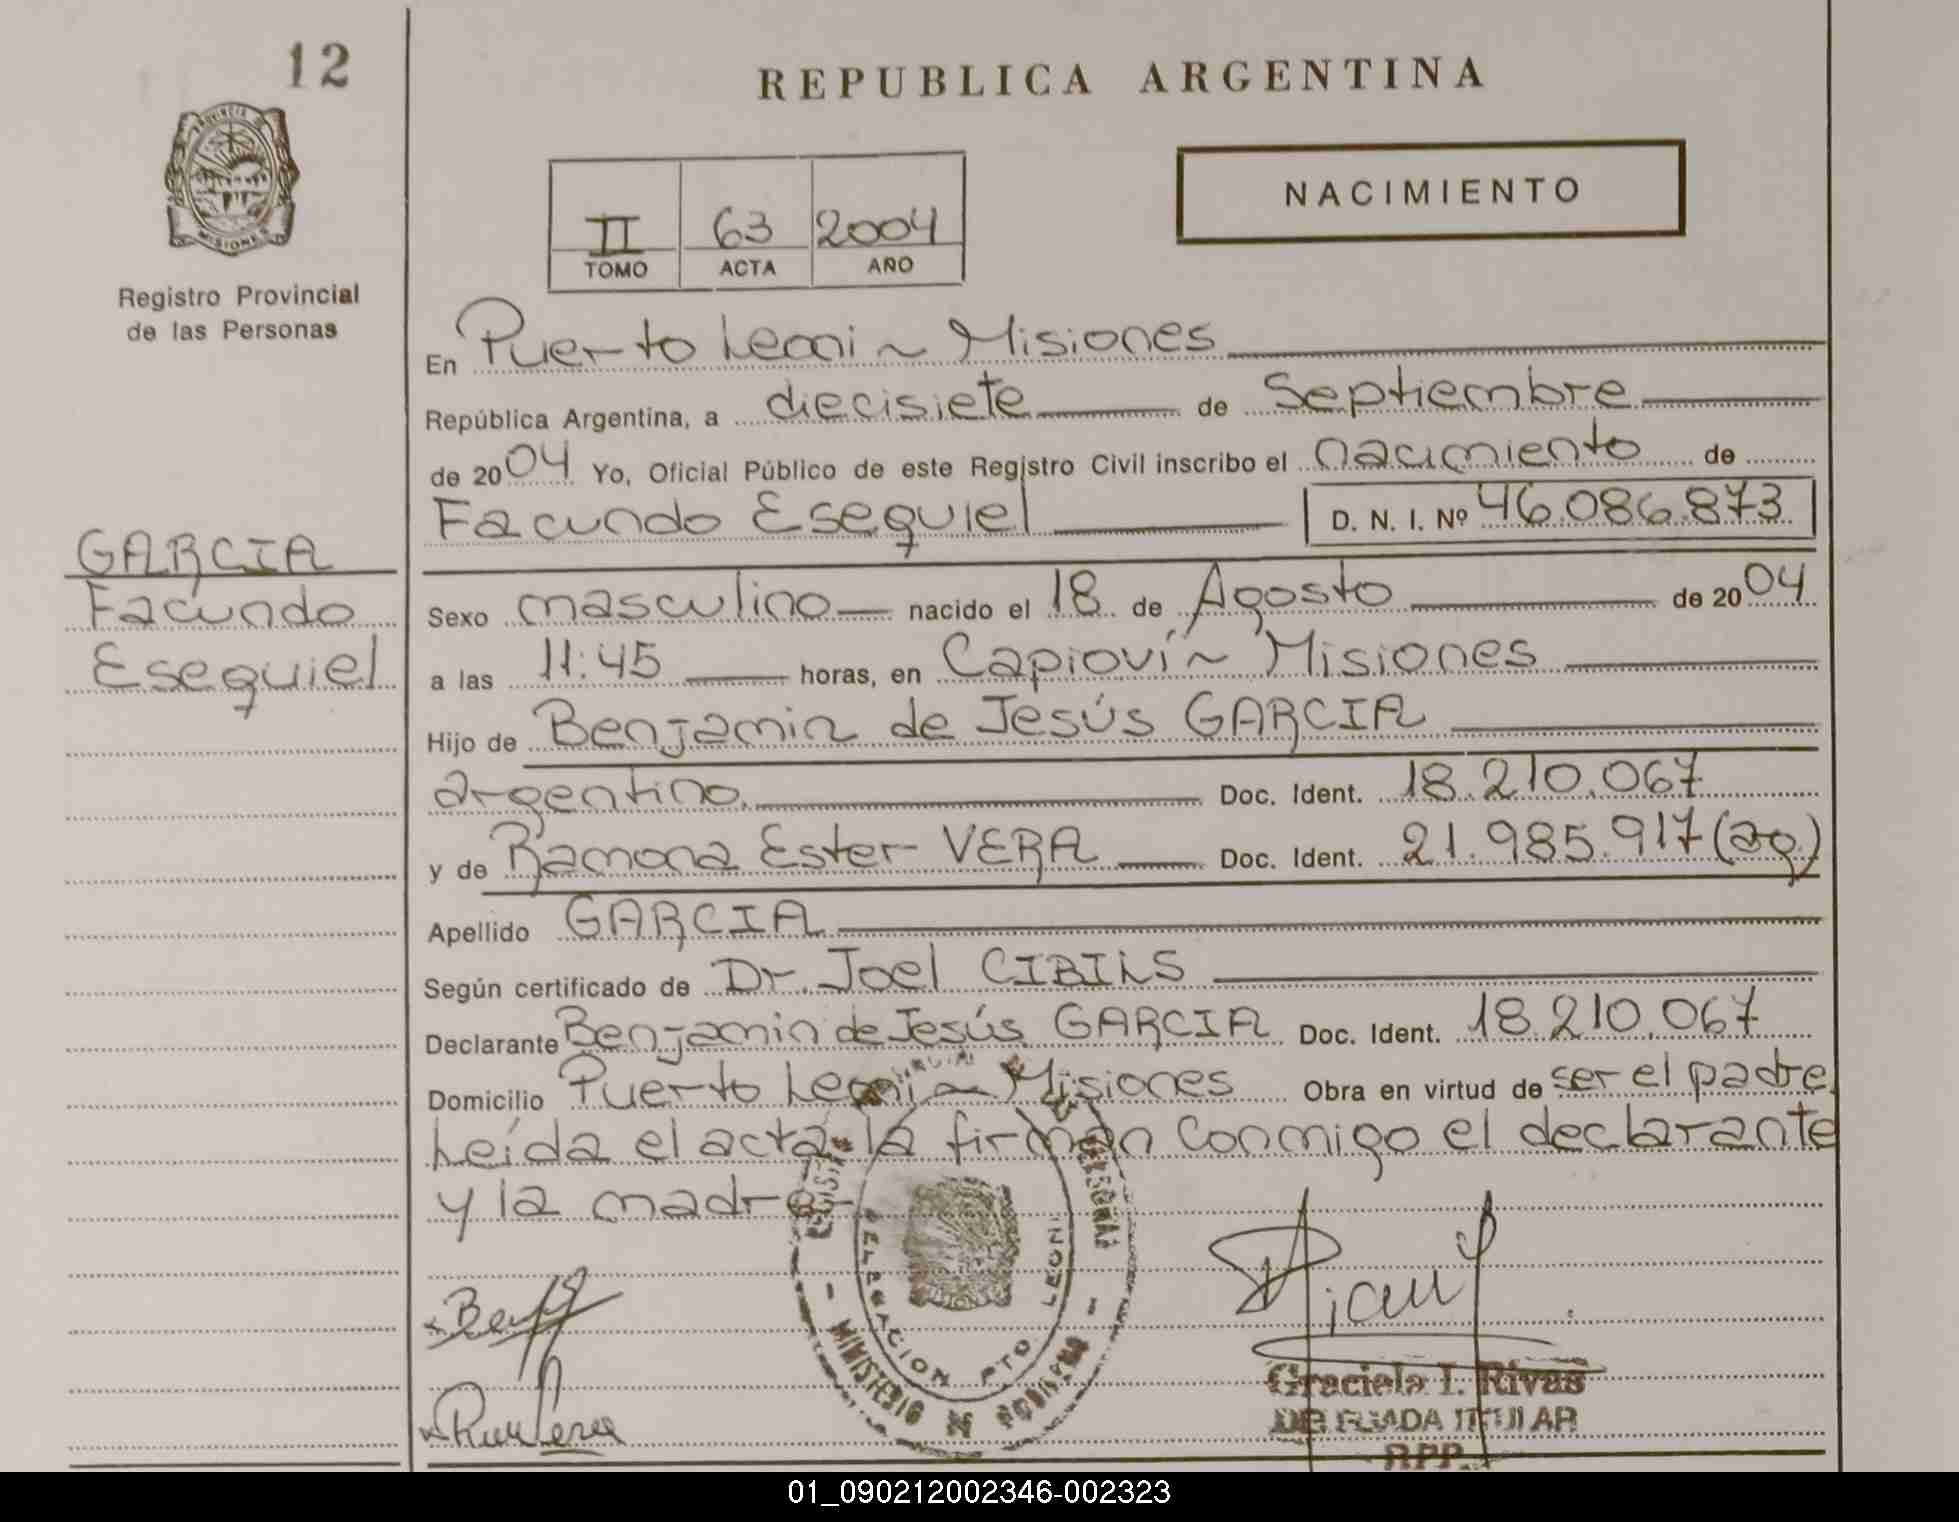 12
PROVINCIA DE
MISIONES
Registro Provincial
de las Personas
GARCIA
Facundo
Esequiel
REPUBLICA ARGENTINA
NACIMIENTO
II 63 2004
TOMO ACTA AÑO
En Puerto Leoni ~ Misiones
República Argentina, a diecisiete de Septiembre
de 2004 Yo, Oficial Público de este Registro Civil inscribo el nacimiento de
Facundo Esequiel D. N. I. Nº 46.086.873
Sexo masculino nacido el 18 de Agosto de 2004
a las 11:45 horas, en Capioví ~ Misiones
Hijo de Benjamin de Jesús GARCIA
argentino. Doc. Ident. 18.210.067
y de Ramona Ester VERA Doc. Ident. 21.985.917 (ag)
Apellido GARCIA
Según certificado de Dr. Joel CIBILS
Declarante Benjamin de Jesús GARCIA Doc. Ident. 18.210.067
Domicilio Puerto Leoni ~ Misiones Obra en virtud de ser el padre.
Leída el acta la firman conmigo el declarante
y la madre.
DELEGACION PTO LEONI
MINISTERIO DE GOBIERNO
Graciela I. Rivas
DELEGADA TITULAR
RPP.
01_090212002346-002323